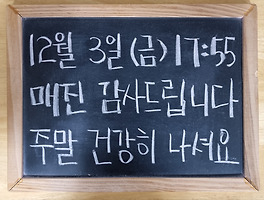 12월 3일(금) 17:55
매진 감사드립니다
주말 건강히 나셔요